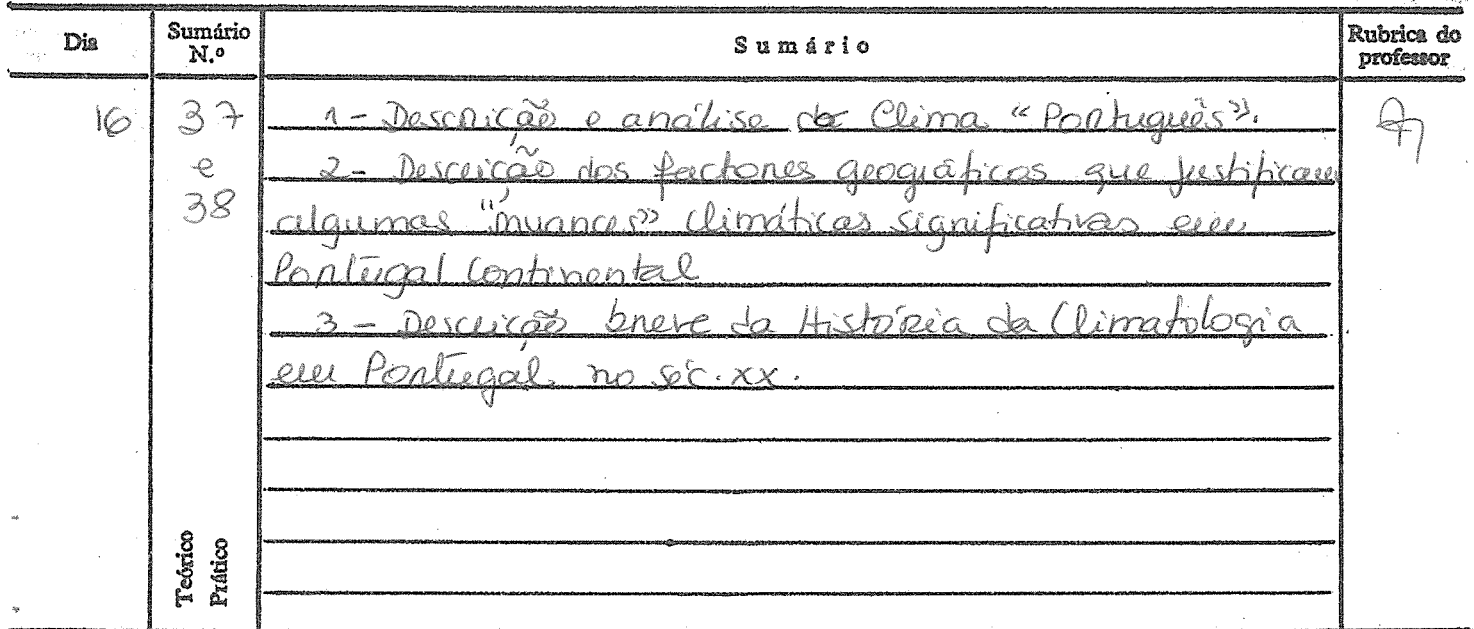 Dia Sumário N.º Sumário Rubrica do professor
16 37 e 38
1 - Descrição e análise do Clima "Português".
2 - Descrição dos factores geográficos que justificam
algumas "nuances" climáticas significativas em
Portugal Continental
3 - Descrição breve da História da Climatologia
em Portugal, no séc. XX.
Teórico
Prático